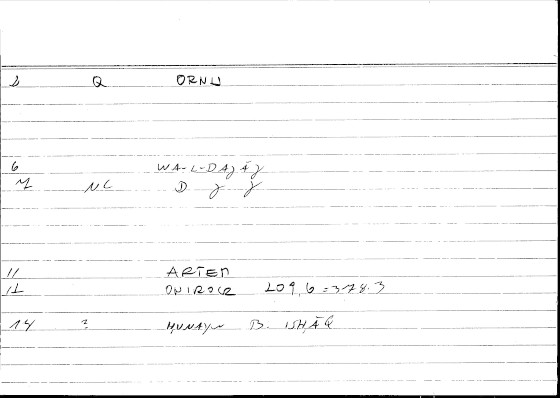 2 Q ORNU
6 WA-L-DAǦĀǦ
NL D Ǧ Ǧ
11 ARTEM
12 ONIROCR 209,6 = 378.3
14 ? ḤUNAYN B. ISḤĀQ